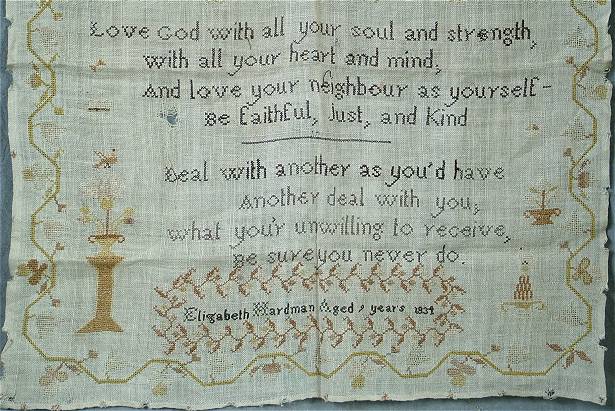 Love God with all your soul and strength,
with all your heart and mind,
And love your neighbour as yourself-
Be faithful, Just, and Kind
Deal with another as you'd have
Another deal with you;
what you'r unwilling to receive,
Be sure you never do.
Elizabeth Hardman Aged 9 years 1834